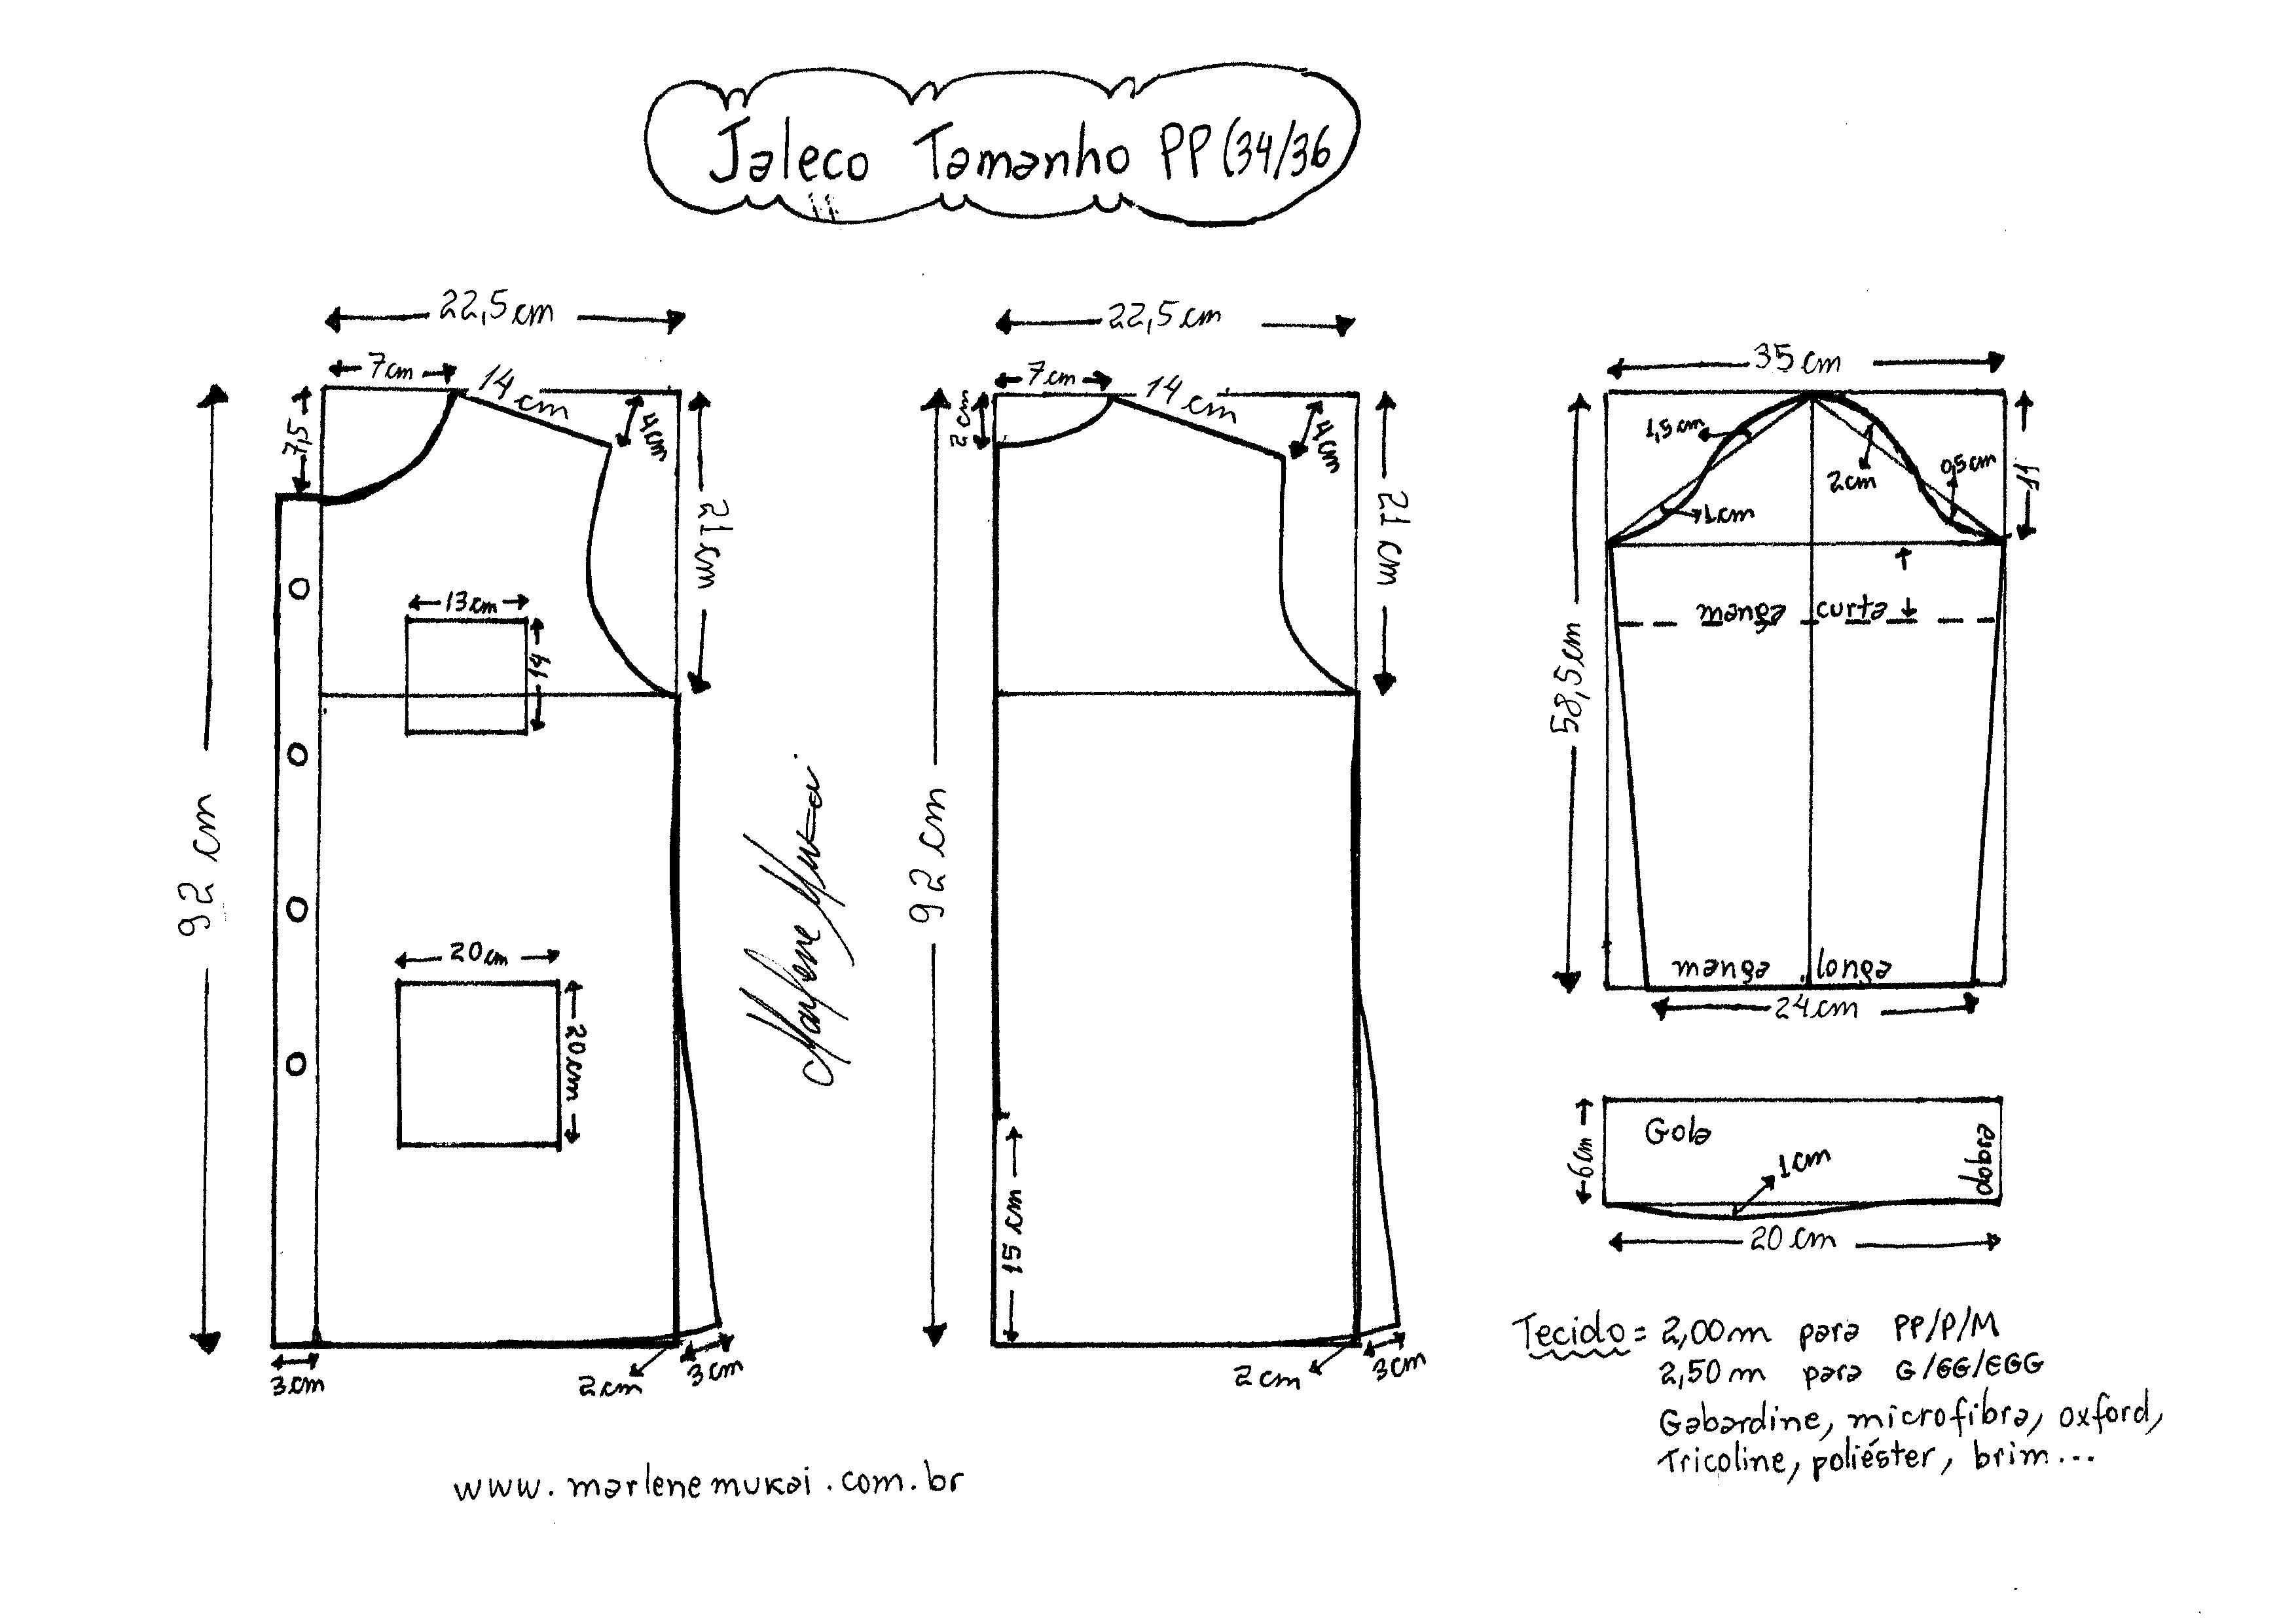 Jaleco Tamanho PP (34/36
22,5 cm
7cm
14 cm
4cm
7,5
21 cm
92 cm
13cm
14
20cm
20cm
3cm
2cm
3cm
Marlene Mukai
22,5 cm
7cm
14 cm
2cm
4cm
21 cm
92 cm
15 cm
2cm
3cm
35 cm
1,5cm
2cm
0,5cm
1cm
11
manga curta
58,5cm
manga longa
24cm
Gola
6cm
1cm
dobra
20 cm
Tecido = 2,00m para PP/P/M
2,50 m para G/GG/EGG
Gabardine, microfibra, oxford,
Tricoline, poliéster, brim...
www.marlenemukai.com.br